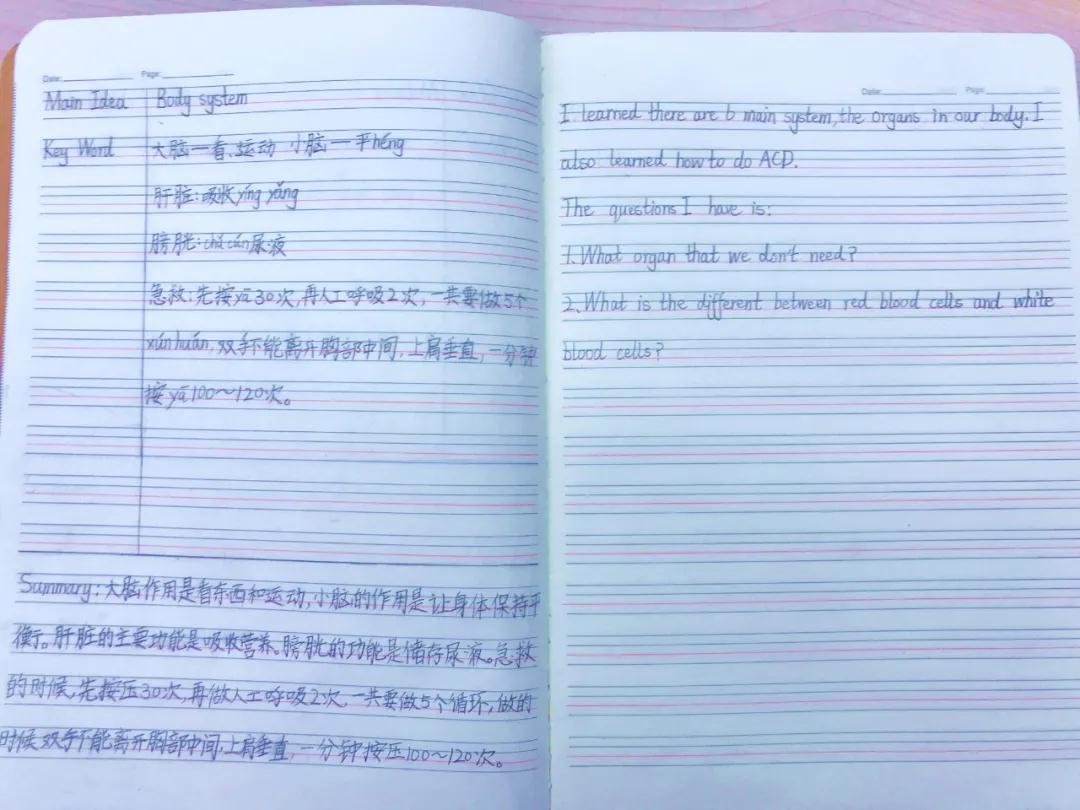 Date: Page:
Main Idea Body system
Key Word 大脑—看、运动 小脑—平héng
肝脏:吸收yíng yǎng
膀胱:chǔ cún尿液
急救:先按yā30次,再人工呼吸2次,一共要做5个
xúnhuán,双手不能离开胸部中间,上肩垂直,一分钟
按yā100~120次。
Summary:大脑作用是看东西和运动,小脑的作用是让身体保持平
衡。肝脏的主要功能是吸收营养。膀胱的功能是储存尿液。急救
的时候,先按压30次,再做人工呼吸2次,一共要做5个循环,做的
时候双手不能离开胸部中间,上肩垂直,一分钟按压100~120次。
Date: Page:
I learned there are 6 main system, the organs in our body. I
also learned how to do ACD.
The questions I have is:
1. What organ that we don't need?
2. What is the different between red blood cells and white
blood cells?